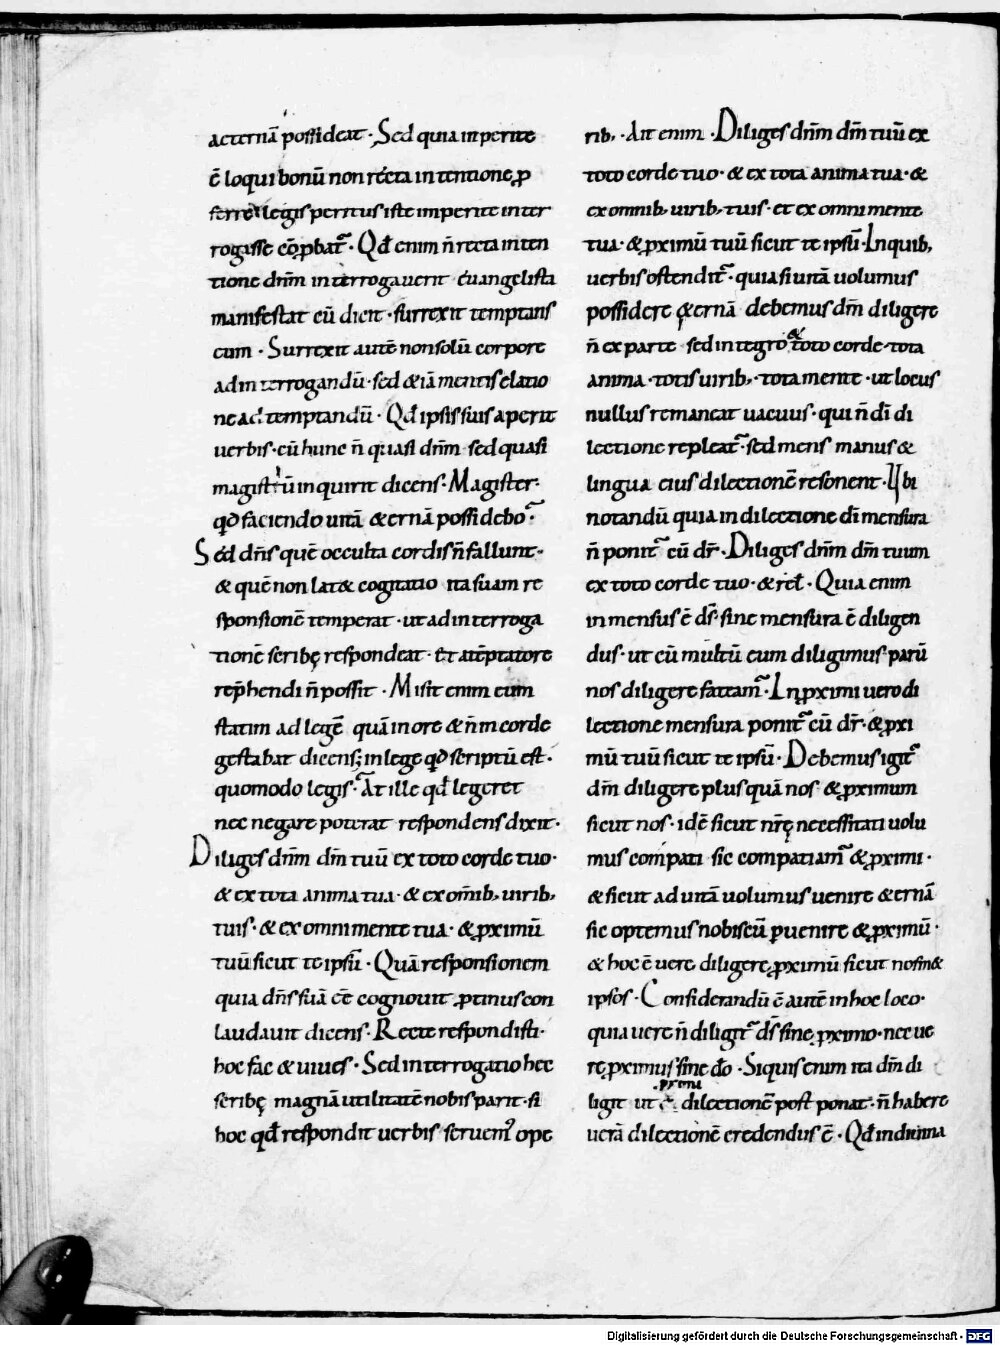 aeternā possideat · Sed quia inperite
ē loqui bonū non recta intentione ꝓ
ferre legis peritus iste imperite inter
rogasse cōꝓbat᷑ · Qđ enim n̄ recta inten
tione dn̄m interrogauerit euangelista
manifestat cū dicit · surrexit temptans
eum · Surrexit autē non solū corpore
ad interrogandū · sed &iā mentis elatio
ne ad temptandū · Qđ ipsis suis aperit
uerbis · cū hunc n̄ quasi dn̄m sed quasi
magistrū inquirit dicens · Magister ·
qđ faciendo uitā &ernā possidebo ·
Sed dn̄s quē occulta cordis n̄ fallunt ·
& quē non lat& cogitatio ita suam re
sponsionē temperat · ut ad interroga
tionē scribę respondeat · Et a tēptatore
rep̄hendi n̄ possit · Misit enim eum
statim ad legē quā in ore & n̄ in corde
gestabat dicens; in lege qđ scriptū est ·
quomodo legis · At ille qđ legeret
nec negare poterat respondens dixit ·
Diliges dn̄m dm̄ tuū ex toto corde tuo ·
& ex tota anima tua · & ex om̄ib; uirib;
tuis · & ex omni mente tua · & ꝓximū
tuū sicut te ipsū · Quā responsionem
quia dn̄s suā ēē cognouit ꝓtinus con
laudauit dicens · Recte respondisti ·
hoc fac & uiues · Sed interrogatio hec
scribę magnā utilitatē nobis parit · si
hoc qđ respondit uerbis seruem᷒ ope
rib; · Ait enim · Diliges dn̄m dm̄ tuū ex
toto corde tuo · & ex tota anima tua · &
ex omnib; uirib; tuis · et ex omni mente
tua · & ꝓximū tuū sicut te ipsū · In quib;
uerbis ostendit᷑ · quia si uitā uolumus
possidere &ernā debemus dm̄ diligere
n̄ ex parte sed integro & toto corde · tota
anima · totis uirib; · tota mente · ut locus
nullus remaneat uacuus · qui n̄ dī di
lectione repleat᷑ · sed mens manus &
lingua eius dilectionē resonent · Ubi
notandū quia in dilectione dī mensura
n̄ ponit᷑ cū dr̄ · Diliges dn̄m dm̄ tuum
ex toto corde tuo · & rel̄ · Quia enim
inmensus ē ds̄ · sine mensura ē diligen
dus · ut cū multū eum diligimus · parū
nos diligere fateam᷑ · In ꝓximi uero di
lectione mensura ponit᷑ cū dr̄ · & ꝓxi
mū tuū sicut te ipsū · Debemus igit᷑
dm̄ diligere plus quā nos & ꝓximum
sicut nos · idē sicut nr̄ę necessitati uolu
mus compati sic compatiam᷑ & ꝓximi ·
& sicut ad uitā uolumus uenire &ernā
sic optemus nobiscū ꝑuenire & ꝓximū ·
& hoc ē uere diligere ꝓximū sicut nosm&
ipsos · Considerandū ē autē in hoc loco ·
quia uere n̄ diligit᷑ ds̄ sine ꝓximo · nec ue
re ꝓximus sine dō · Siquis enim ita dm̄ di
ligit ut ꝓximi dilectionē postponat · n̄ habere
uerā dilectionē credendus ē · Qđ in diuina
Digitalisierung gefördert durch die Deutsche Forschungsgemeinschaft - DFG